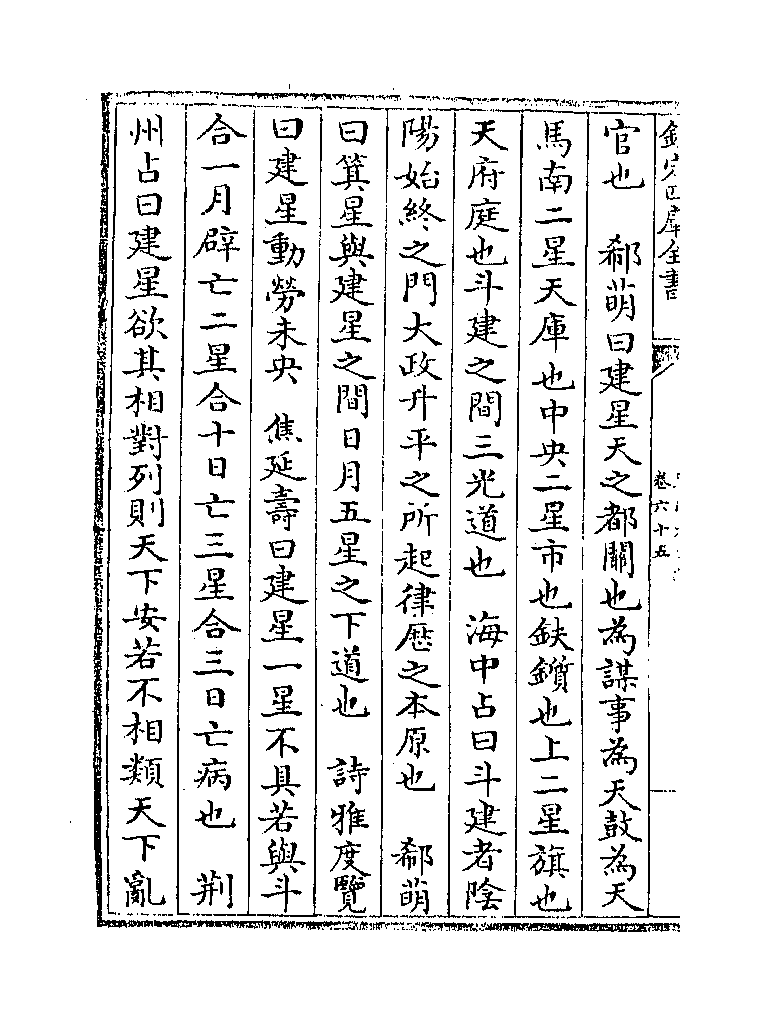 欽定四庫全書
卷六十五
官也　郗萌曰建星天之都關也為謀事為天鼓為天
馬南二星天庫也中央二星市也鈇鑕也上二星旗也
天府庭也斗建之間三光道也　海中占曰斗建者陰
陽始終之門大政升平之所起律厯之本原也　郗萌
曰箕星與建星之間日月五星之下道也　詩雅度覽
曰建星動勞未央　焦延壽曰建星一星不具若與斗
合一月辟亡二星合十日亡三星合三日亡病也　荆
州占曰建星欲其相對列則天下安若不相類天下亂